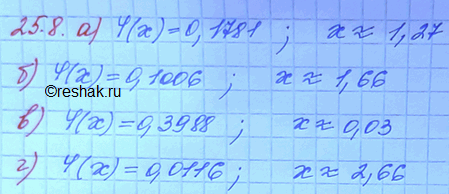 25.8. а) φ(x)=0,1781 ; x ≈ 1,27
б) φ(x)=0,1006 ; x ≈ 1,66
©reshak.ru
в) φ(x)=0,3988 ; x ≈ 0,03
г) φ(x)=0,0116; x ≈ 2,66